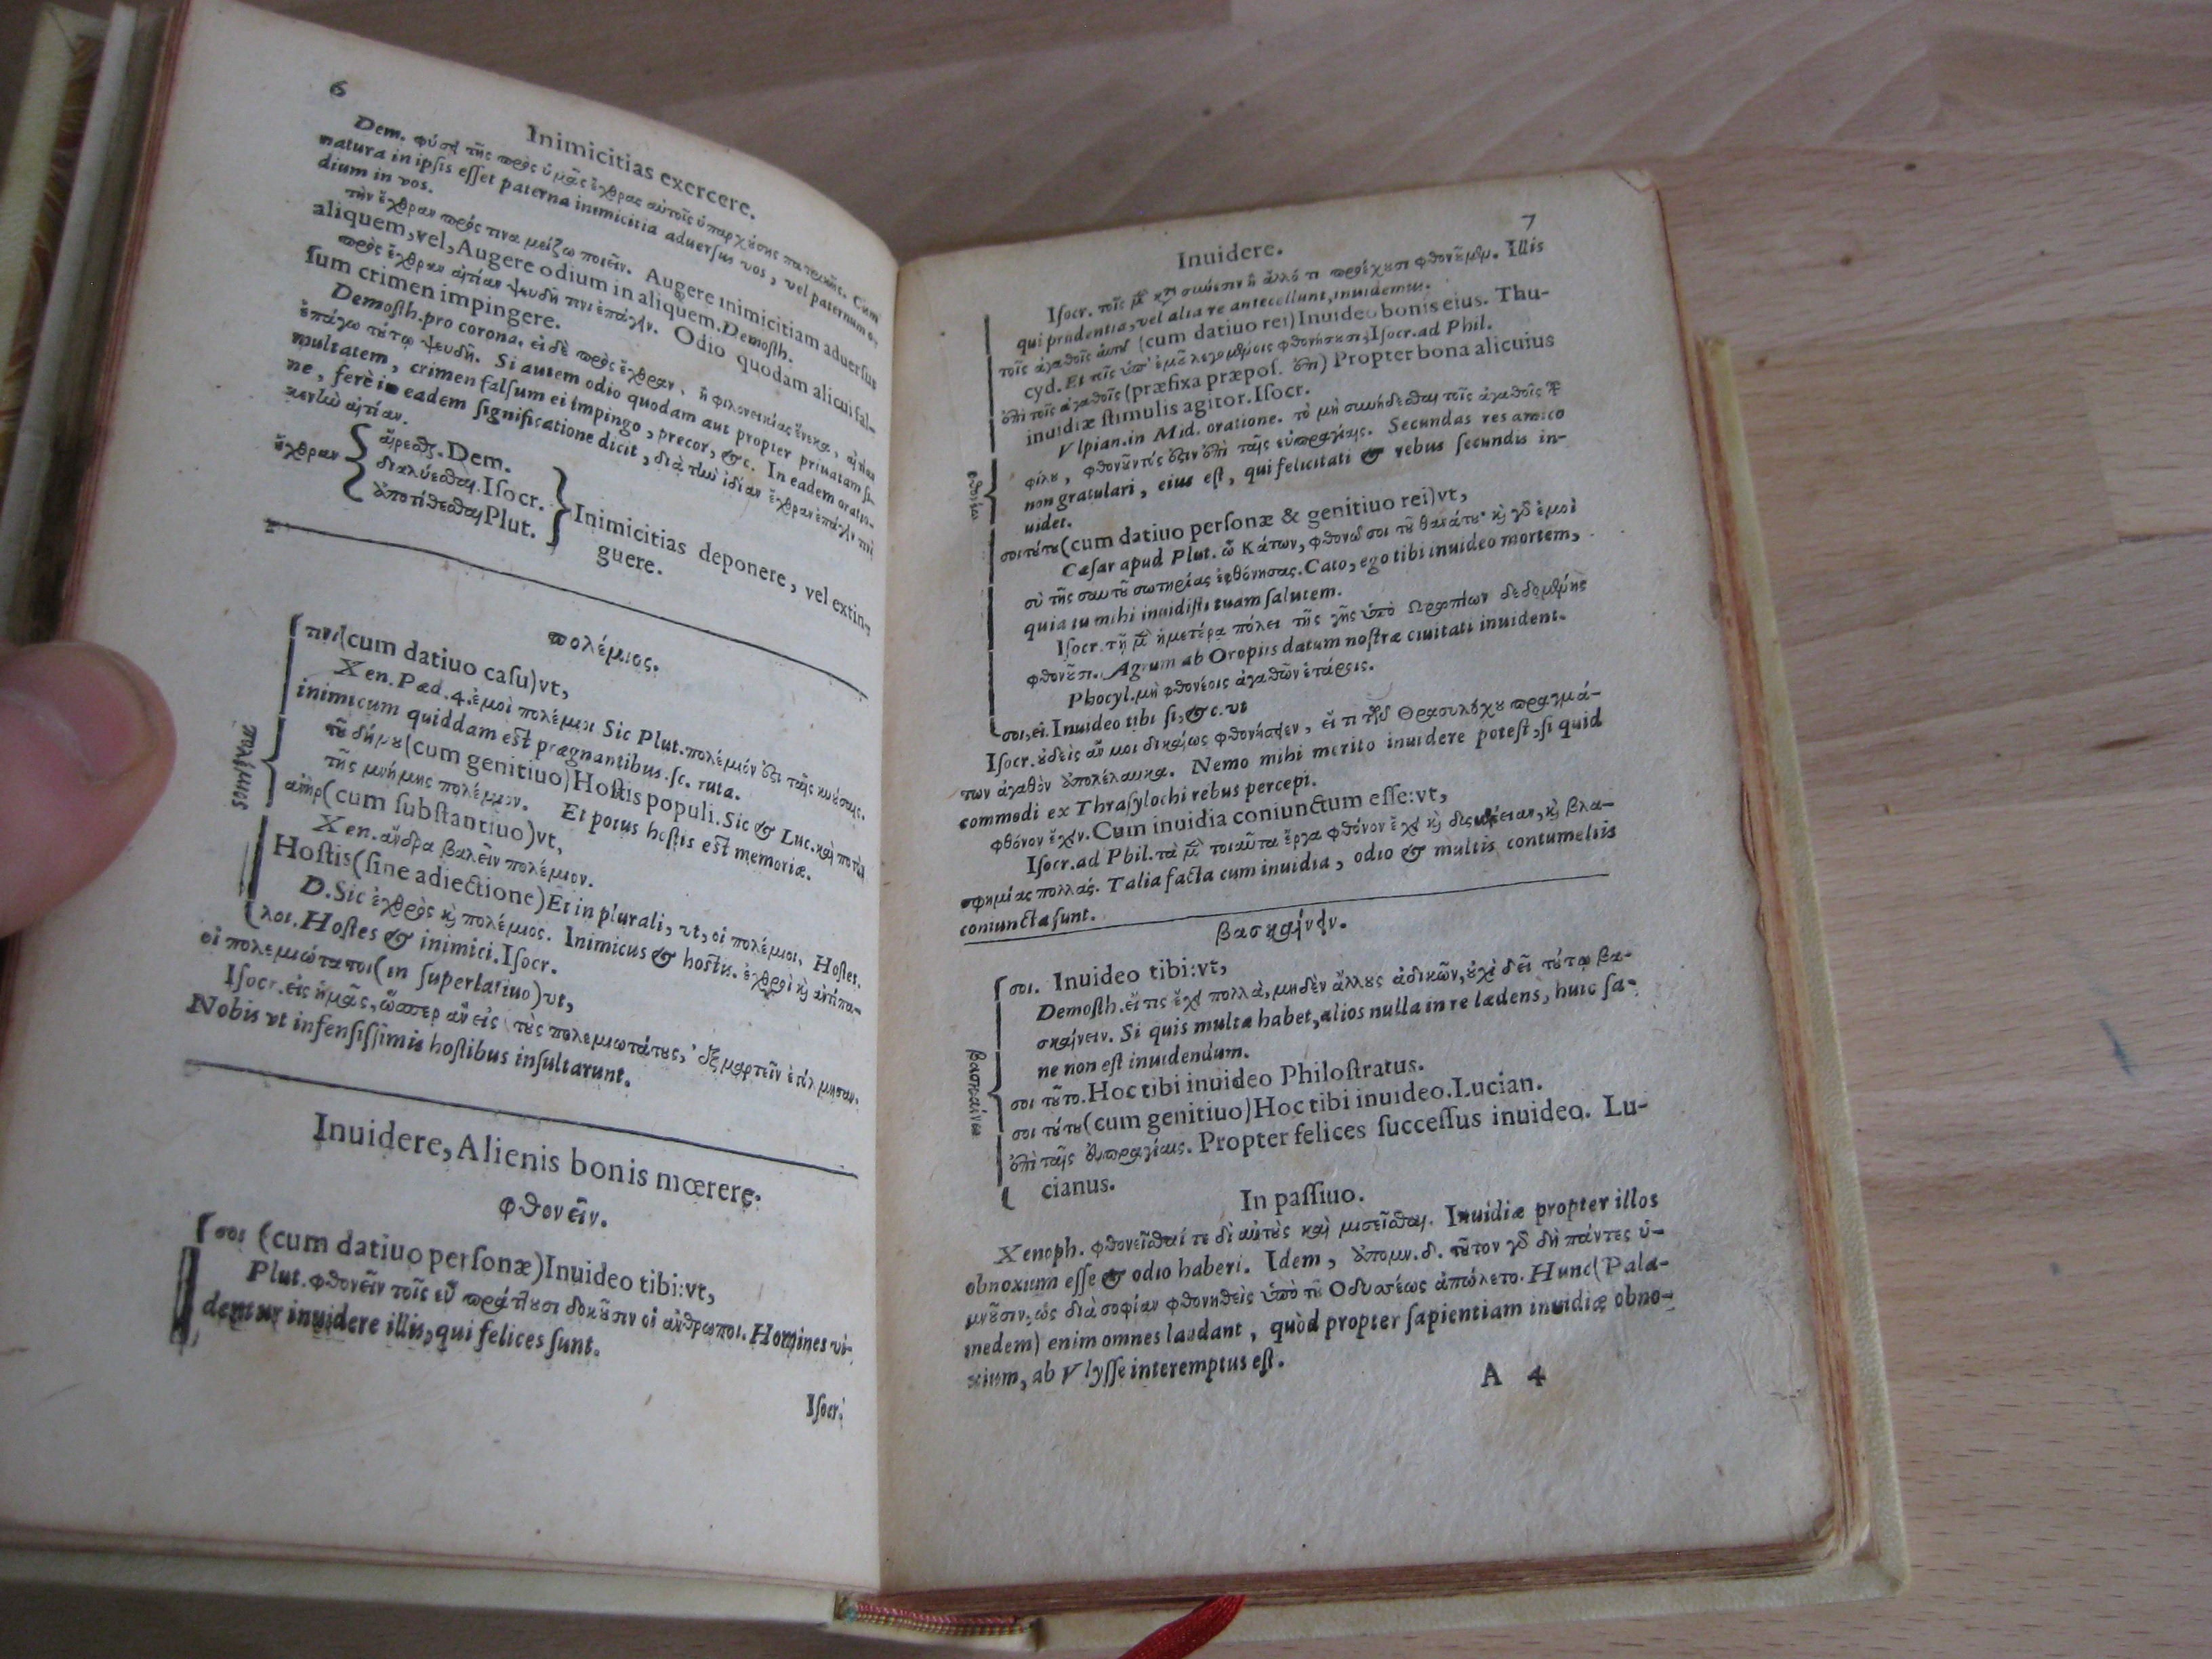 6
Inimicitias exercere.
Dem. φύσει τῆς πρὸς ὑμᾶς ἔχθρας αὐτοῖς ὑπαρχούσης πατρικῆς. Cùm
natura in ipſis eſſet paterna inimicitia aduerſus vos, vel paternum o-
dium in vos.
τὴν ἔχθραν πρός τινα μείζω ποιεῖν. Augere inimicitiam aduerſus
aliquem, vel, Augere odium in aliquem. Demoſth.
πρὸς ἔχθραν αἰτίαν ψευδῆ τινι ἐπάγειν. Odio quodam alicui fal-
ſum crimen impingere.
Demoſth. pro corona, εἰ δὲ πρὸς ἔχθραν, ἢ φιλονεικίας ἕνεκα, αἰτίαν
ἐπάγω τούτῳ ψευδῆ. Si autem odio quodam aut propter priuatam ſi-
multatem, crimen falſum ei impingo, precor, &c. In eadem oratio-
ne, ferè in eadem ſignificatione dicit, διὰ τὴν ἰδίαν ἔχθραν ἐπάγειν τινὶ
κενὴν αἰτίαν.
ἔχθραν
αἴρεσθαι. Dem.
διαλύεσθαι. Iſocr.
ἀποτίθεσθαι Plut.
Inimicitias deponere, vel extin-
guere.
πολέμιος.
πολέμιος
τινι (cum datiuo caſu) vt,
Xen. Pæd. 4. ἐμοὶ πολέμιοι Sic Plut. πολέμιόν ἐστι ταῖς κυούσαις.
inimicum quiddam est prægnantibus. ſc. ruta.
τοῦ δήμου (cum genitiuo) Hoſtis populi. Sic & Luc. καὶ ποτὸν
τῆς μνήμης πολέμιον. Et potus hoſtis est memoriæ.
ἀνὴρ (cum ſubſtantiuo) vt,
Xen. ἄνδρα βαλεῖν πολέμιον.
Hoſtis (ſine adiectione) Et in plurali, vt, οἱ πολέμιοι, Hoſtes.
D. Sic ἐχθρὸς καὶ πολέμιος. Inimicus & hoſtis. ἐχθροὶ καὶ ἀντίπα-
λοι. Hoſtes & inimici. Iſocr.
οἱ πολεμιώτατοι (in ſuperlatiuo) vt,
Iſocr. εἰς ἡμᾶς, ὥσπερ ἂν εἰς τοὺς πολεμιωτάτους, ἐξαμαρτεῖν ἐτόλμησαν.
Nobis vt infenſiſſimis hoſtibus inſultarunt.
Inuidere, Alienis bonis mœrere.
φθονεῖν.
σοι (cum datiuo perſonæ) Inuideo tibi: vt,
Plut. φθονεῖν τοῖς εὖ πράττουσι δοκοῦσιν οἱ ἄνθρωποι. Homines vi-
dentur inuidere illis, qui felices ſunt.
Iſocr.
7
Inuidere.
φθονέω
Iſocr. τοῖς μὲν κατὰ σύνεσιν ἢ ἄλλό τι προέχουσι φθονοῦμεν. Illis
qui prudentia, vel alia re antecellunt, inuidemus.
τοῖς ἀγαθοῖς αὐτοῦ (cum datiuo rei) Inuideo bonis eius. Thu-
cyd. Et τοῖς ὑπ' ἐμοῦ λεγομένοις φθονήσουσι, Iſocr. ad Phil.
ἐπὶ τοῖς ἀγαθοῖς (præfixa præpoſ. ἐπὶ) Propter bona alicuius
inuidiæ ſtimulis agitor. Iſocr.
Vlpian. in Mid. oratione. τὸ μὴ συνήδεσθαι τοῖς ἀγαθοῖς τοῦ
φίλου, φθονοῦντός ἐστιν ἐπὶ ταῖς εὐπραγίαις. Secundas res amico
non gratulari, eius eſt, qui felicitati & rebus ſecundis in-
uidet.
σοι τούτου (cum datiuo perſonæ & genitiuo rei) vt,
Cæſar apud Plut. ὦ Κάτων, φθονῶ σοι τοῦ θανάτου· καὶ γὰρ ἐμοὶ
σὺ τῆς σαυτοῦ σωτηρίας ἐφθόνησας. Cato, ego tibi inuideo mortem,
quia tu mihi inuidiſti tuam ſalutem.
Iſocr. τῇ μὲν ἡμετέρᾳ πόλει τῆς γῆς ὑπὸ Ωρωπίων δεδομένης
φθονοῦσι. Agrum ab Oropiis datum noſtræ ciuitati inuident.
Phocyl. μὴ φθονέοις ἀγαθῶν ἑτάροις.
σοι, εἰ. Inuideo tibi ſi, &c. vt
Iſocr. οὐδεὶς ἄν μοι δικαίως φθονήσειεν, εἴ τι τῶν Θρασυλόχου πραγμά-
των ἀγαθὸν ἀπολέλαυκα. Nemo mihi merito inuidere poteſt, ſi quid
commodi ex Thraſylochi rebus percepi.
φθόνον ἔχειν. Cum inuidia coniunctum eſſe: vt,
Iſocr. ad Phil. τὰ μὲν τοιαῦτα ἔργα φθόνον ἔχει καὶ δυσμένειαν, καὶ βλα-
σφημίας πολλάς. Talia facta cum inuidia, odio & multis contumeliis
coniuncta ſunt.
βασκαίνειν.
βασκαίνω
σοι. Inuideo tibi: vt,
Demoſth. εἴ τις ἔχει πολλὰ, μηδὲν ἄλλους ἀδικῶν, οὐχὶ δεῖ τούτῳ βα-
σκαίνειν. Si quis multa habet, alios nulla in re lædens, huic ſa-
ne non eſt inuidendum.
σοι τοῦτο. Hoc tibi inuideo Philoſtratus.
σοι τούτου (cum genitiuo) Hoc tibi inuideo. Lucian.
ἐπὶ ταῖς εὐπραγίαις. Propter felices ſucceſſus inuideo. Lu-
cianus.
In paſſiuo.
Xenoph. φθονεῖσθαί τε δι' αὐτοὺς καὶ μισεῖσθαι. Inuidiæ propter illos
obnoxium eſſe & odio haberi. Idem, ἀπομν. δ. τοῦτον γὰρ δὴ πάντες ὑ-
μνοῦσιν, ὡς διὰ σοφίαν φθονηθεὶς ὑπὸ τοῦ Οδυσσέως ἀπώλετο. Hunc (Pala-
medem) enim omnes laudant, quòd propter ſapientiam inuidiæ obno-
xium, ab Vlyſſe interemptus eſt.
A 4